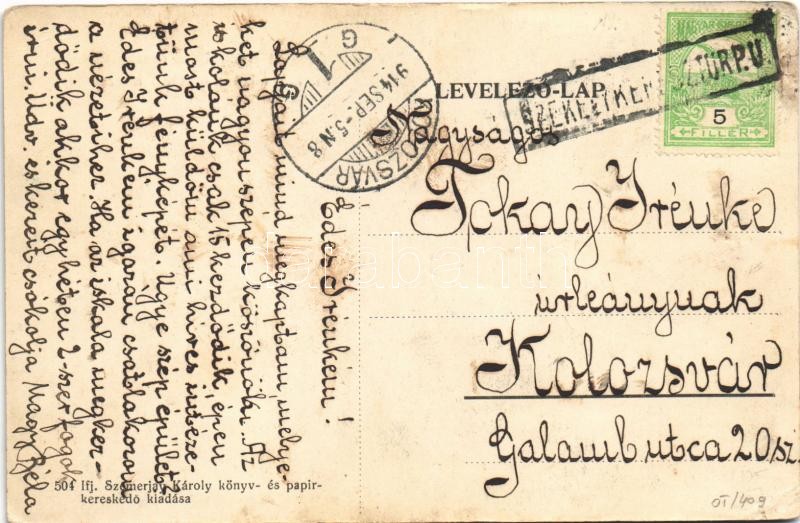 LEVELEZŐ-LAP
5
FILLER
KOLOZSVÁR
914 SEP. -5. N 8
1 G
Nagyságos
Tokay Irénke
úrleánynak
Kolozsvár
Galamb utca 20 sz.
Édes Irénkém!
Lapjait mind megkaptam, melye-
ket nagyon szépen köszönök. Az
iskoláink csak 15 kezdődik, épen
most küldöm ami híres intéze-
tünk fényképét. Ugye szép épület
Édes Irénkém igazán csatlakozom
a nézetéhez. Ha az iskola megkez-
dődik akkor egy héten 2-szer fogok
írni. Üdv. és kezeit csókolja Nagy Béla
504 Ifj. Szemerjay Károly könyv- és papir-
kereskedő kiadása
OT/409